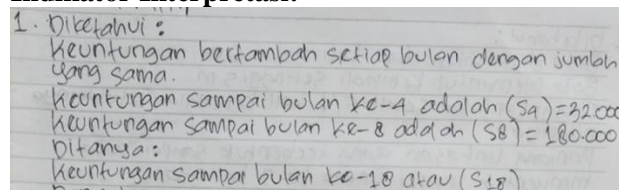 1. Diketahui :
Keuntungan bertambah setiap bulan dengan jumlah
yang sama.
Keuntungan sampai bulan ke-4 adalah (S4) = 32000
Keuntungan sampai bulan ke-8 adalah (S8) = 180.000
Ditanya :
Keuntungan sampai bulan ke-18 atau (S18)